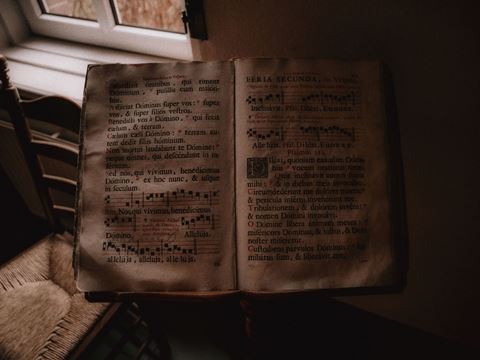 omnibus, qui timent
Dominum, * pusillis cum majori-
bus.
Adjiciat Dominus super vos: * super
vos, & super filios vestros.
Benedicti vos à Domino, * qui fecit
cælum, & terram.
Cælum cæli Domino: * terram au-
tem dedit filiis hominum.
Non mortui laudabunt te Domine: *
neque omnes, qui descendunt in in-
fernum.
Sed nos, qui vivimus, benedicimus
Domino, * ex hoc nunc, & usque
in sæculum.
Nos, qui vivimus, benedicimus
Domino. Alleluja,
alleluja, alleluja, alleluja.
FERIA SECUNDA,
Inclinavit.
Alleluja.
Psalmus
Dilexi, quoniam exaudiet Domi-
nus * vocem orationis meæ.
Quia inclinavit aurem suam
mihi: * & in diebus meis invocabo.
Circumdederunt me dolores mortis: *
& pericula inferni invenerunt me.
Tribulationem, & dolorem inveni: *
& nomen Domini invocavi.
O Domine libera animam meam: *
misericors Dominus, & justus, & Deus
noster miseretur.
Custodiens parvulos Dominus: *
humiliatus sum, & liberavit me.